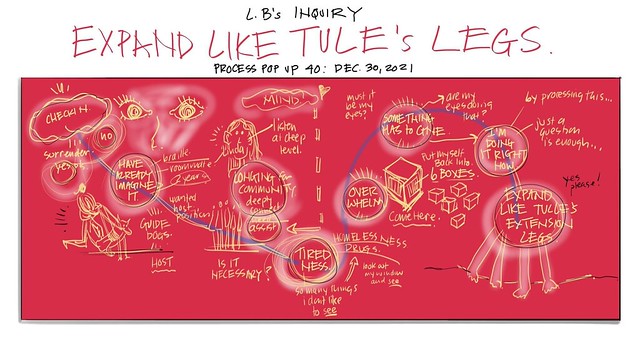 L.B's INQUIRY
EXPAND LIKE TULE'S LEGS.
PROCESS POP UP 40: DEC. 30, 2021
CHECK IN.
no
surrender
yes
HAVE
ALREADY
IMAGINE
IT
braille.
roommate
wanted
host
position
GUIDE
DOGS.
HOST
MIND
listen
at deep
level.
LONGING for
COMMUNITY
deep
assist
IS IT
NECESSARY?
TIRED
NESS.
so many things
i don't like
to see
HOMELESSNESS
DRUGS.
look out
my window
and see
must it
be my
eyes?
SOMETHING
HAS to GIVE
are my
eyes doing
that
OVER
WHELM
Put myself
Back into
6 BOXES.
Come Here.
I'M
DOING
IT RIGHT
NOW
by processing this...
just a
question
is enough...
yes
please!
EXPAND
LIKE TULE'S
EXTENSION
LEGS